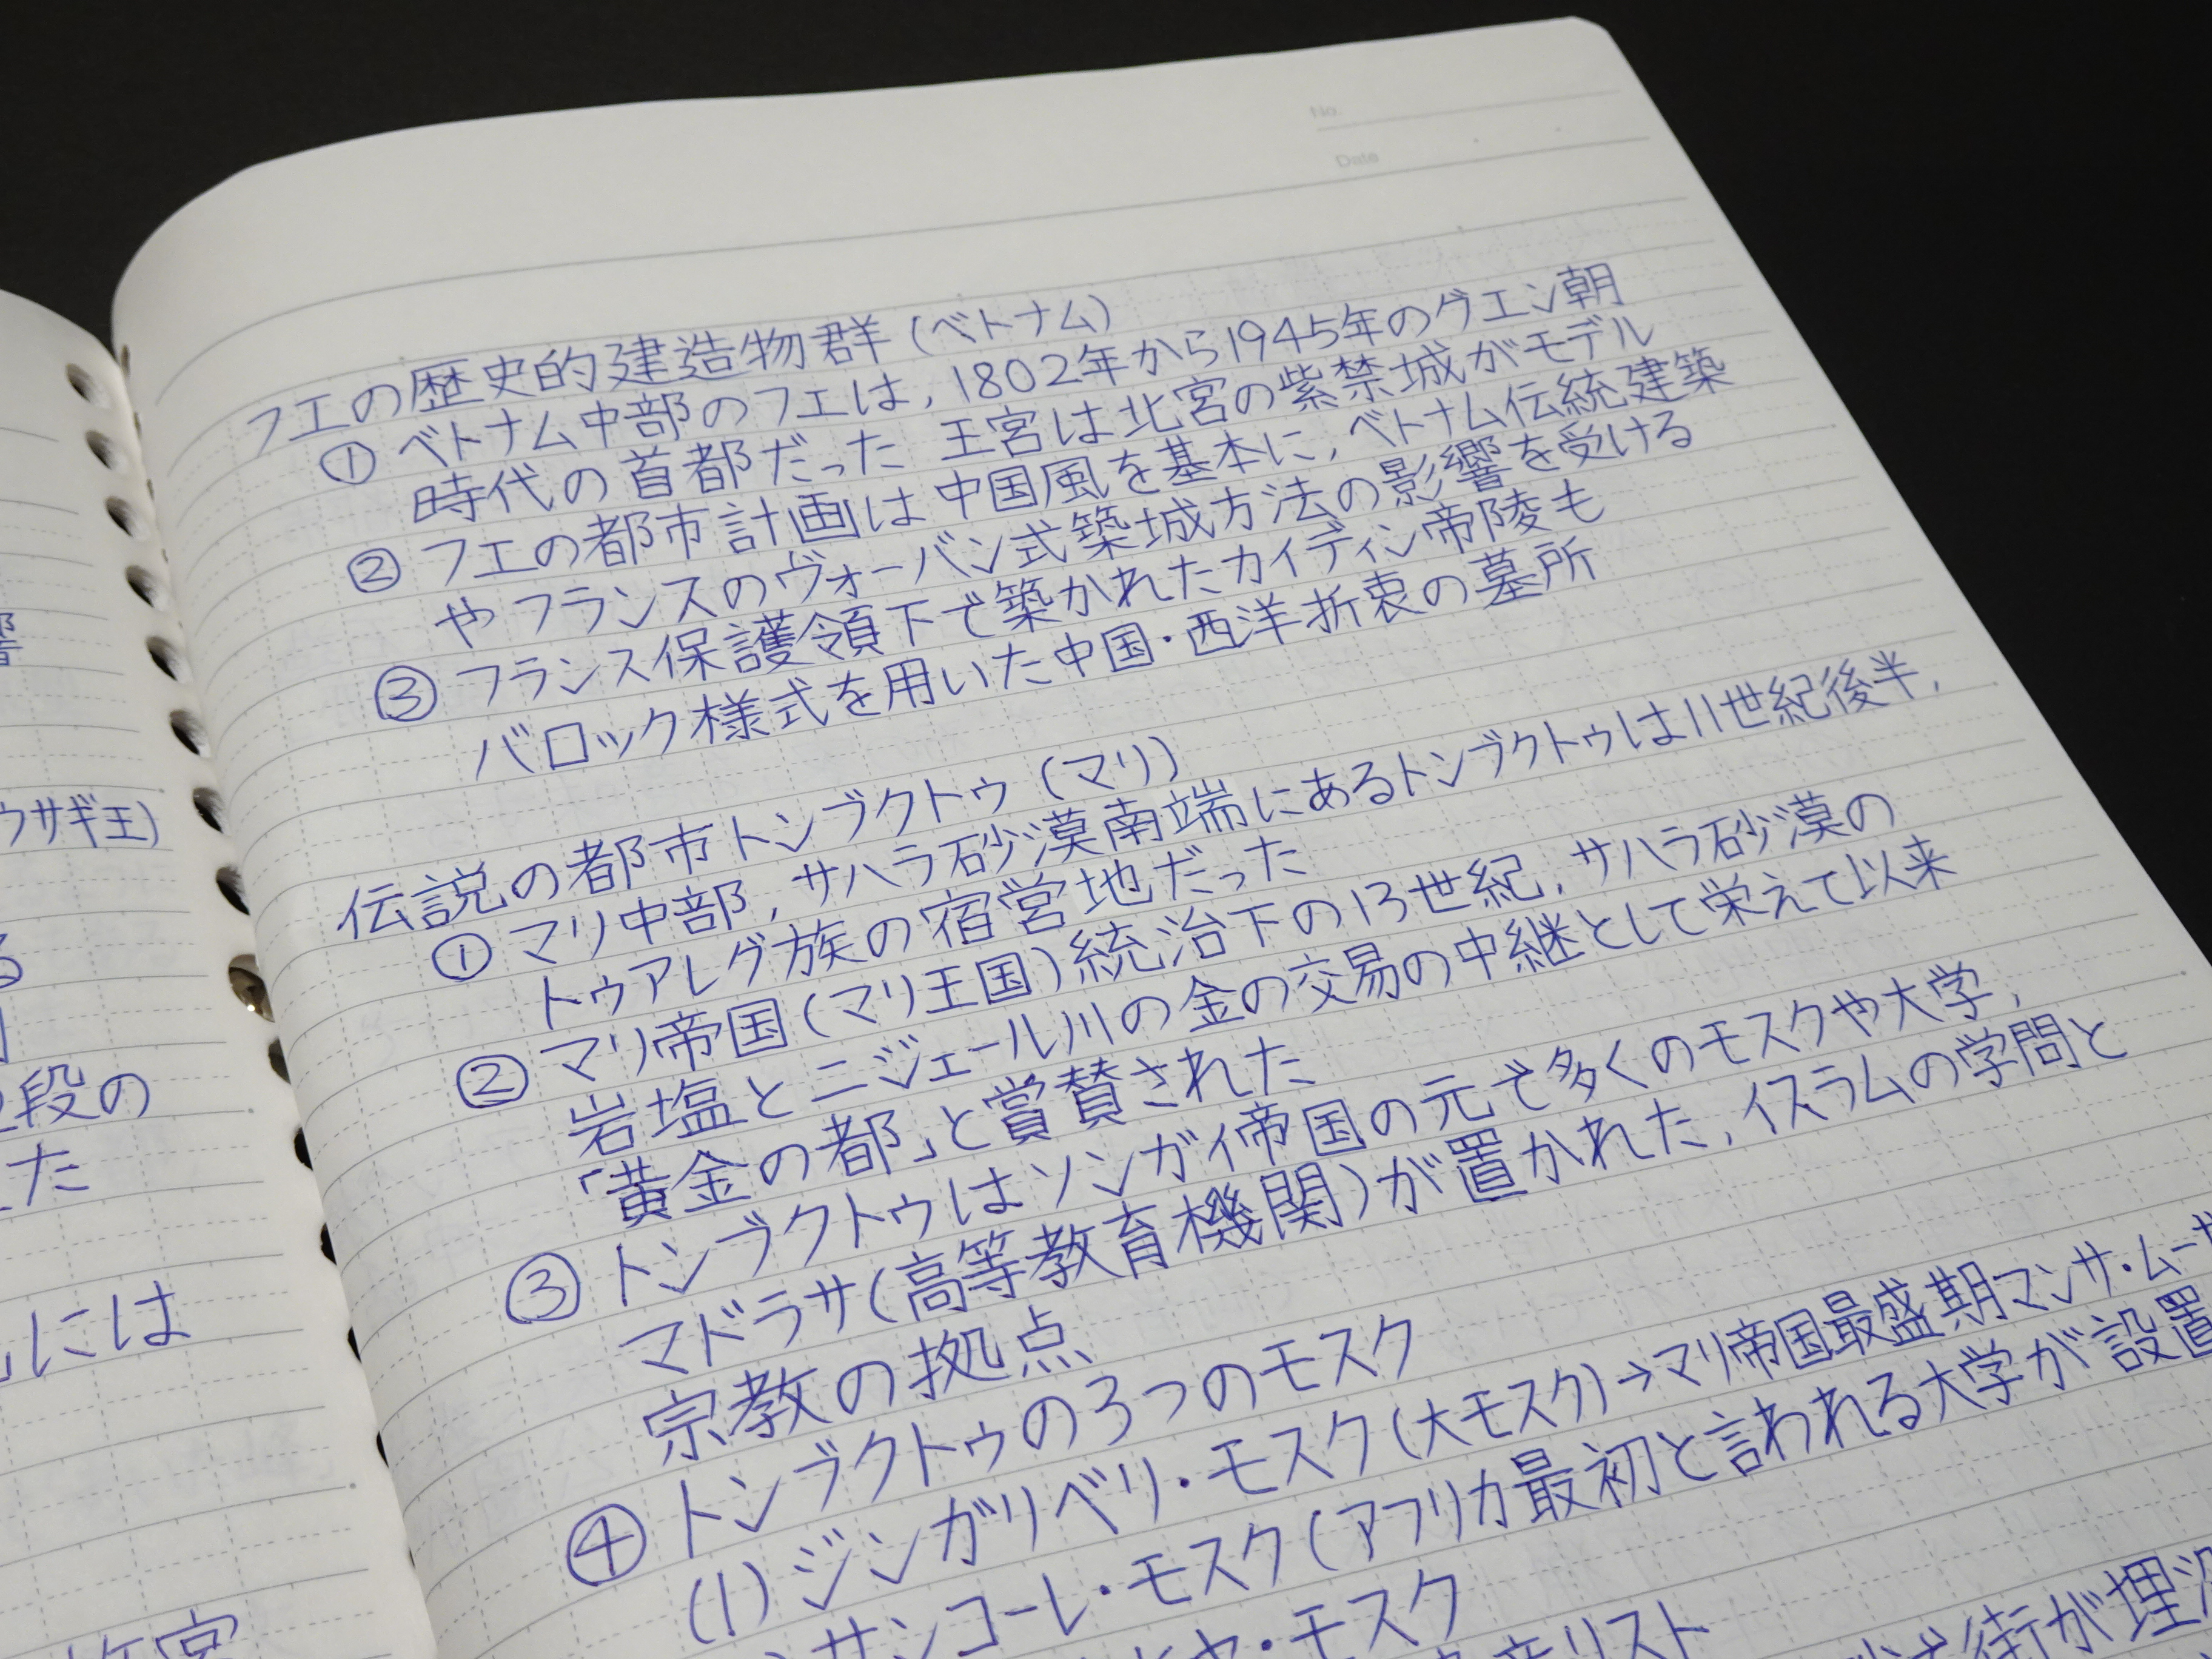 No.
Date
フエの歴史的建造物群(ベトナム)
① ベトナム中部のフエは,1802年から1945年のグエン朝
時代の首都だった 王宮は北宮の紫禁城がモデル
② フエの都市計画は中国風を基本に,ベトナム伝統建築
やフランスのヴォーバン式築城方法の影響を受ける
③ フランス保護領下で築かれたカイディン帝陵も
バロック様式を用いた中国・西洋折衷の墓所
伝説の都市トンブクトゥ(マリ)
① マリ中部,サハラ砂漠南端にあるトンブクトゥは11世紀後半,
トゥアレグ族の宿営地だった
② マリ帝国(マリ王国)統治下の13世紀,サハラ砂漠の
岩塩とニジェール川の金の交易の中継として栄えて以来
「黄金の都」と賞賛された
③ トンブクトゥはソンガイ帝国の元で多くのモスクや大学,
マドラサ(高等教育機関)が置かれた,イスラムの学問と
宗教の拠点
④ トンブクトゥの3つのモスク
(1)ジンガリベリ・モスク(大モスク)→マリ帝国最盛期マンサ・ムーサ
サンコーレ・モスク(アフリカ最初と言われる大学が設置
ヤ・モスク
産リスト
街が埋没
響
ウサギ王)
る
段の
た
には
宮